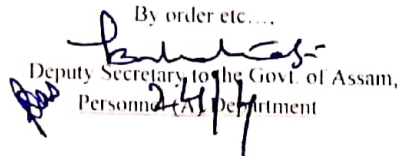 By order etc...,
Deputy Secretary to the Govt. of Assam,
Personnel (A) Department
24/4